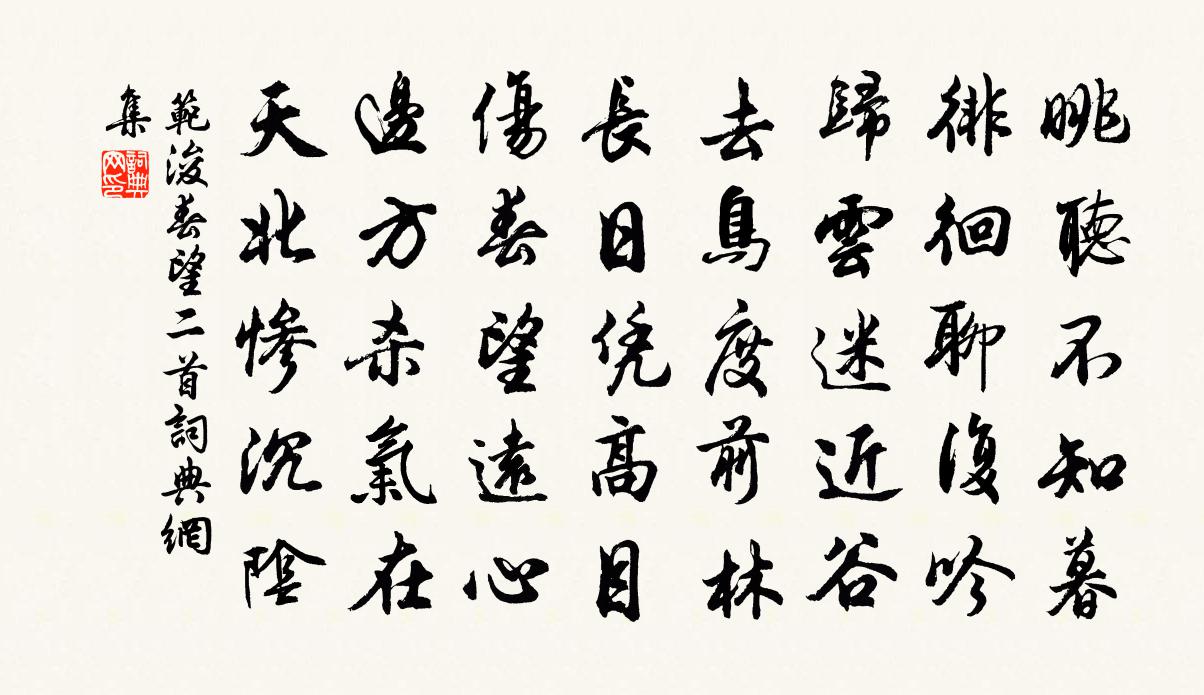 眺聽不知暮
徘徊聊復吟
歸雲迷近谷
去鳥度前林
長日凭高目
傷春望遠心
邊方杀氣在
天北慘沉陰
範浚春望二首詞典網
集
詞典网印